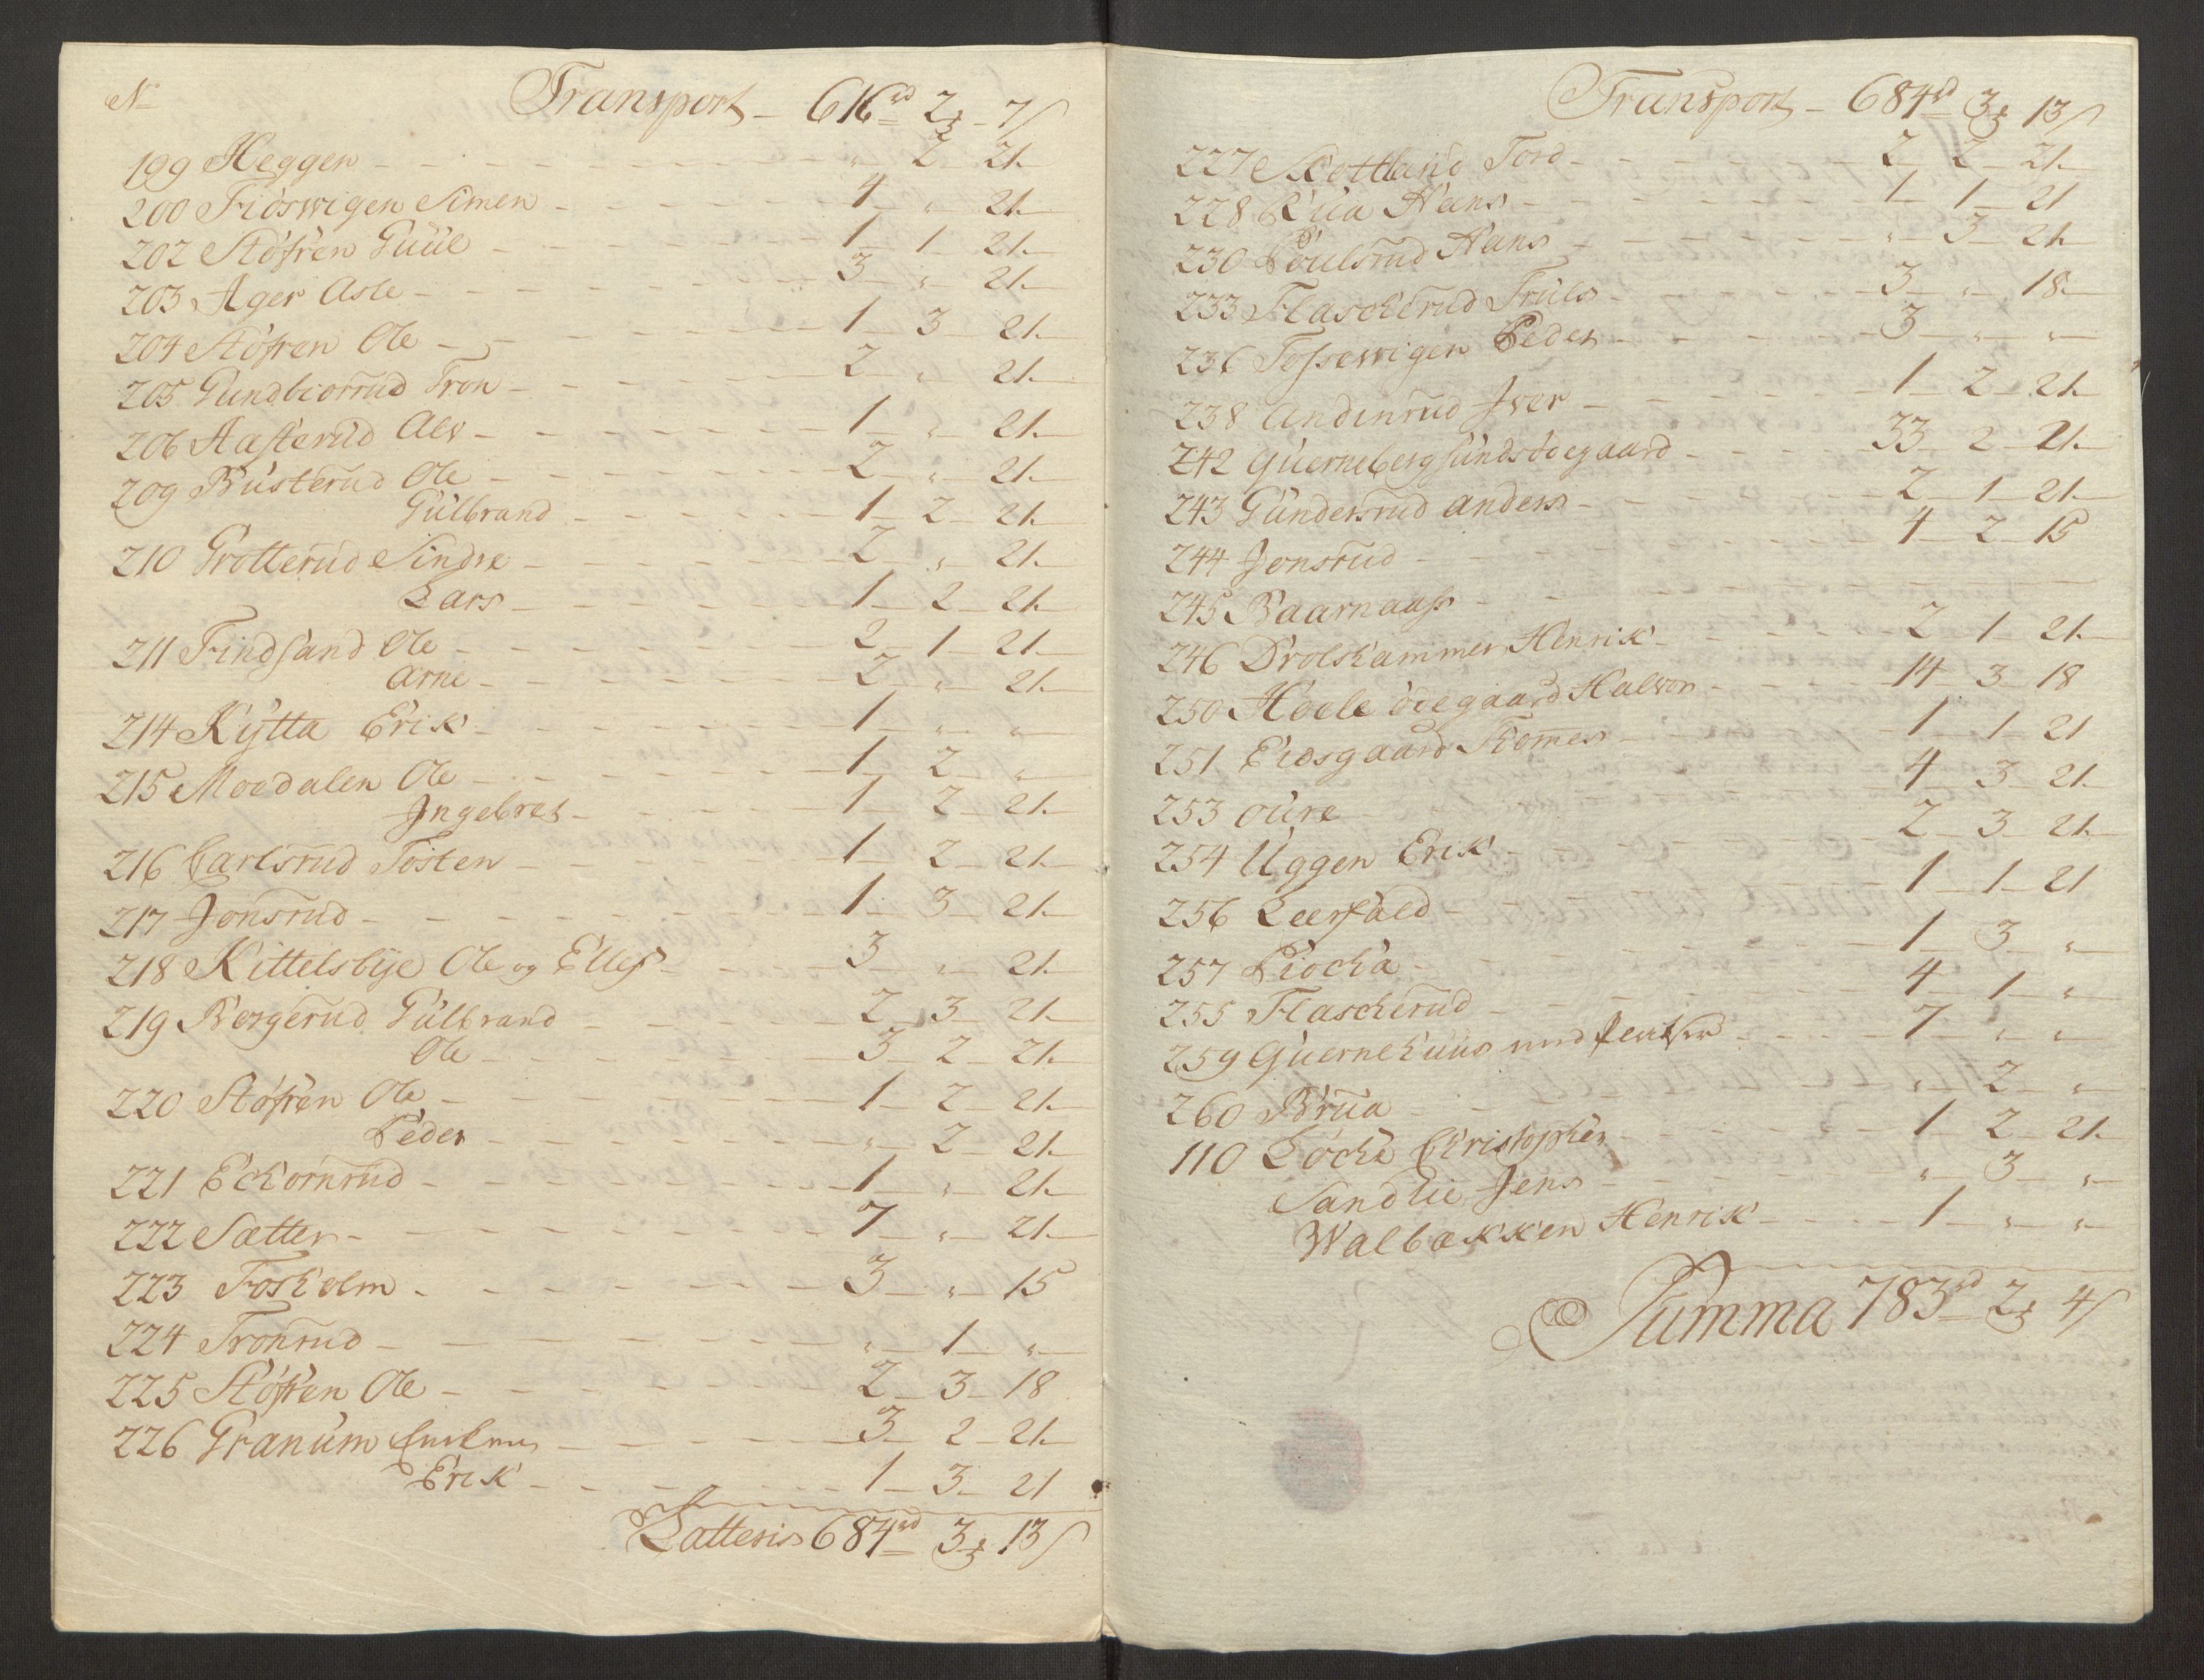 No Transport - 616 rd 2 - 7 s
199 Heggen - " 2 21
200 Fidswigen Simen - 4 " 21
202 Støfren Guul - 1 1 21
203 Ager Asle - 3 " 21
204 Støfren Ole - 1 3 21
205 Gundbiørrud Tron - 2 " 21
206 Aasterud Alv - 1 " 21
209 Busterud Ole - 2 " 21
Gulbrand - 1 2 21
210 Grotterud Sindre - 2 " 21
Lars - 1 2 21
211 Findsand Ole - 2 1 21
Arne - 2 " 21
214 Kytta Erik - 1 " "
215 Moedalen Ole - 1 2 "
Ingebret - 1 2 21
216 Carlsrud Tosten - 1 2 21
217 Jonsrud - 1 3 21
218 Kittelsbye Ole og Ellef - 3 " 21
219 Bergerud Gulbrand - 2 3 21
Ole - 3 2 21
220 Støfren Ole - 1 2 21
Peder - " 2 21
221 Echornrud - 1 " 21
222 Sætter - 7 " 21
223 Fosholm - 3 " 15
224 Tronrud - " 1 "
225 Støfren Ole - 2 3 18
226 Granum - 3 2 21
Erik - 1 3 21
Latteris 684 rd 3 13 s
Transport - 684 rd 3 13 s
227 Skottland Tord - 2 2 21
228 Rua Hans - 1 1 21
230 Poulsrud Hans - " 3 21
233 Flascherud Truls - 3 " 18
236 Fossewigen Peder - 3 " "
238 Andinrud Iver - 1 2 21
242 Querneberg sunds ødegaard - 33 2 21
243 Gundersrud Anders - 2 1 21
244 Jonsrud - 4 2 15
245 Baarnaas -
246 Drolshammer Henrik - 2 1 21
250 Hoele ødegaard Halvor - 14 3 18
251 Eidsgaard - 1 1 21
253 oure - 4 3 21
254 Uggen Erik - 2 3 21
256 Leerfald - 1 1 21
257 Piocha - 1 3 "
255 Flascherud - 4 1 "
259 Quernehuus - 7 " "
260 Brua - " 2 "
110 Løche Christopher - 1 2 21
Sandlie Jens - " 3 "
Walbækken Henrik - 1 " "
Summa 783 rd 2 4 s